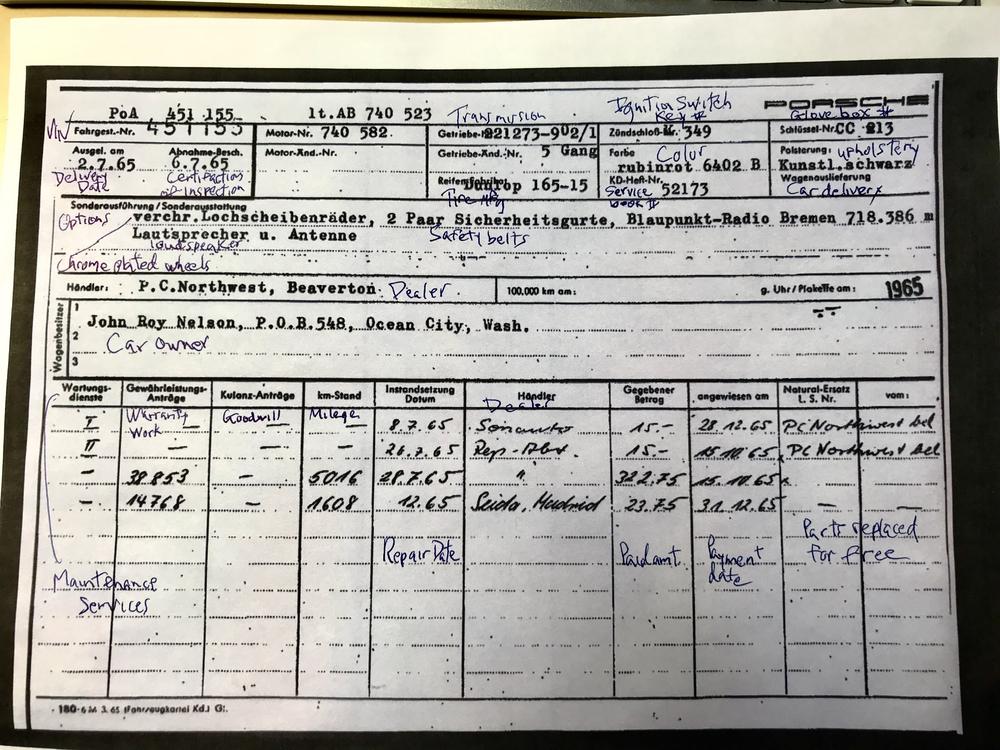 PoA 451 155 lt.AB 740 523 Transmission Ignition Switch Key # PORSCHE
VIN Fahrgest.-Nr. 451155 Motor-Nr. 740 582 Getriebe-Nr. 221273-902/1 Zündschloß-Nr. K 349 Glove box # Schlüssel-Nr. CC 213
Ausgel. am Abnahme-Besch. Motor-Änd.-Nr. Getriebe-Änd.-Nr. 5 Gang Farbe Color Polsterung: upholstery
2.7.65 6.7.65 rubinrot 6402 B Kunstl.schwarz
Delivery Date Certification of Inspection Reifenfabrikat Dunlop 165-15 KD-Heft-Nr. 52173 Wagenauslieferung
Tire Mfg Service book # Car delivery
Sonderausführung/Sonderausstattung
Options verchr.Lochscheibenräder, 2 Paar Sicherheitsgurte, Blaupunkt-Radio Bremen 718.386 m
Lautsprecher u. Antenne Safety belts
loudspeaker
Chrome plated wheels
Händler: P.C.Northwest, Beaverton Dealer 100.000 km am: g. Uhr/Plakette am: 1965
Wagenbesitzer
1 John Roy Nelson, P.O.B.548, Ocean City, Wash.
2 Car Owner
3
Wartungsdienste Gewährleistungs-Anträge Kulanz-Anträge km-Stand Instandsetzung Datum Händler Gegebener Betrag angewiesen am Natural-Ersatz L. S. Nr. vom:
Warranty Work Goodwill Mileage Dealer
I — — 8.7.65 15.- 28.12.65 PC Northwest bel
II — — — 26.7.65 Rep.-Abt. 15.- 15.10.65 PC Northwest bel
— 38853 — 5016 28.7.65 " 322.75 15.10.65
— 14768 — 1608 12.65 Seida, Madrid 23.75 31.12.65 — —
Repair Date Paid amt Payment date Parts replaced for free
Maintenance Services
180 3. 65 (Fahrzeugkartei Kd.) G.